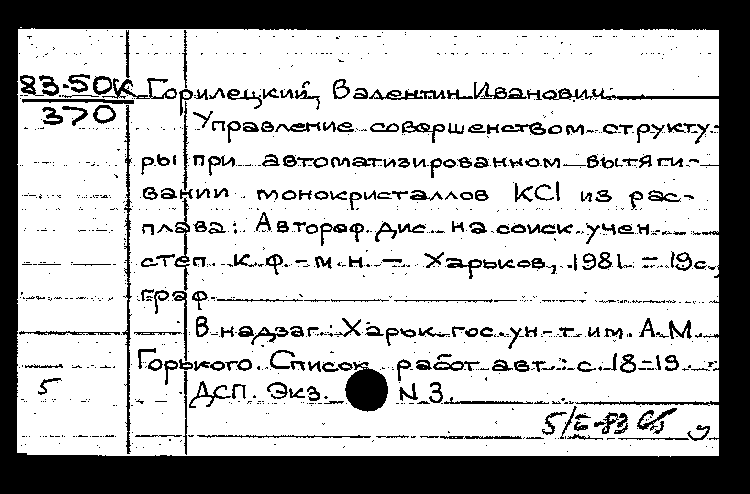 83-50К Горилецкий, Валентин Иванович.
370
Управление совершенством структу-
ры при автоматизированном вытяги-
вании монокристаллов KCl из рас-
плава: Автореф. дис. на соиск. учен.
степ. к.ф.-м.н. - Харьков, 1981. - 19с.,
граф.
В надзаг.: Харьк. гос. ун-т им. А.М.
Горького. Список работ авт.: с. 18-19.
5 ДСП. Экз. N 3.